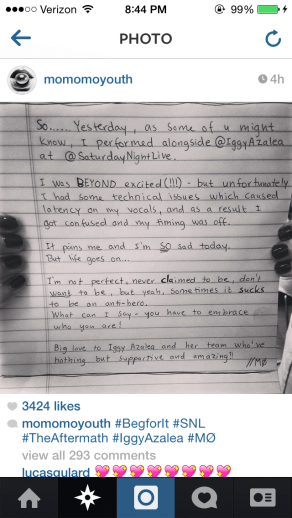 Verizon 8:44 PM 99%
PHOTO
momomoyouth 4h
So...... Yesterday, as some of u might
know, I performed alongside @IggyAzalea
at @SaturdayNightLive.
I was BEYOND excited(!!!) - but unfortunately
I had some technical issues which caused
latency on my vocals, and as a result I
got confused and my timing was off.
It pains me and I'm SO sad today.
But life goes on...
I'm not perfect, never claimed to be, don't
want to be, but yeah, sometimes it sucks
to be an anti-hero.
What can I say - you have to embrace
who you are!
Big love to Iggy Azalea and her team who've
nothing but supportive and amazing!!
//MØ
3424 likes
momomoyouth #BegforIt #SNL
#TheAftermath #IggyAzalea #MØ
view all 293 comments
lucasgulard 💖💖💖💖💖💖💖💖